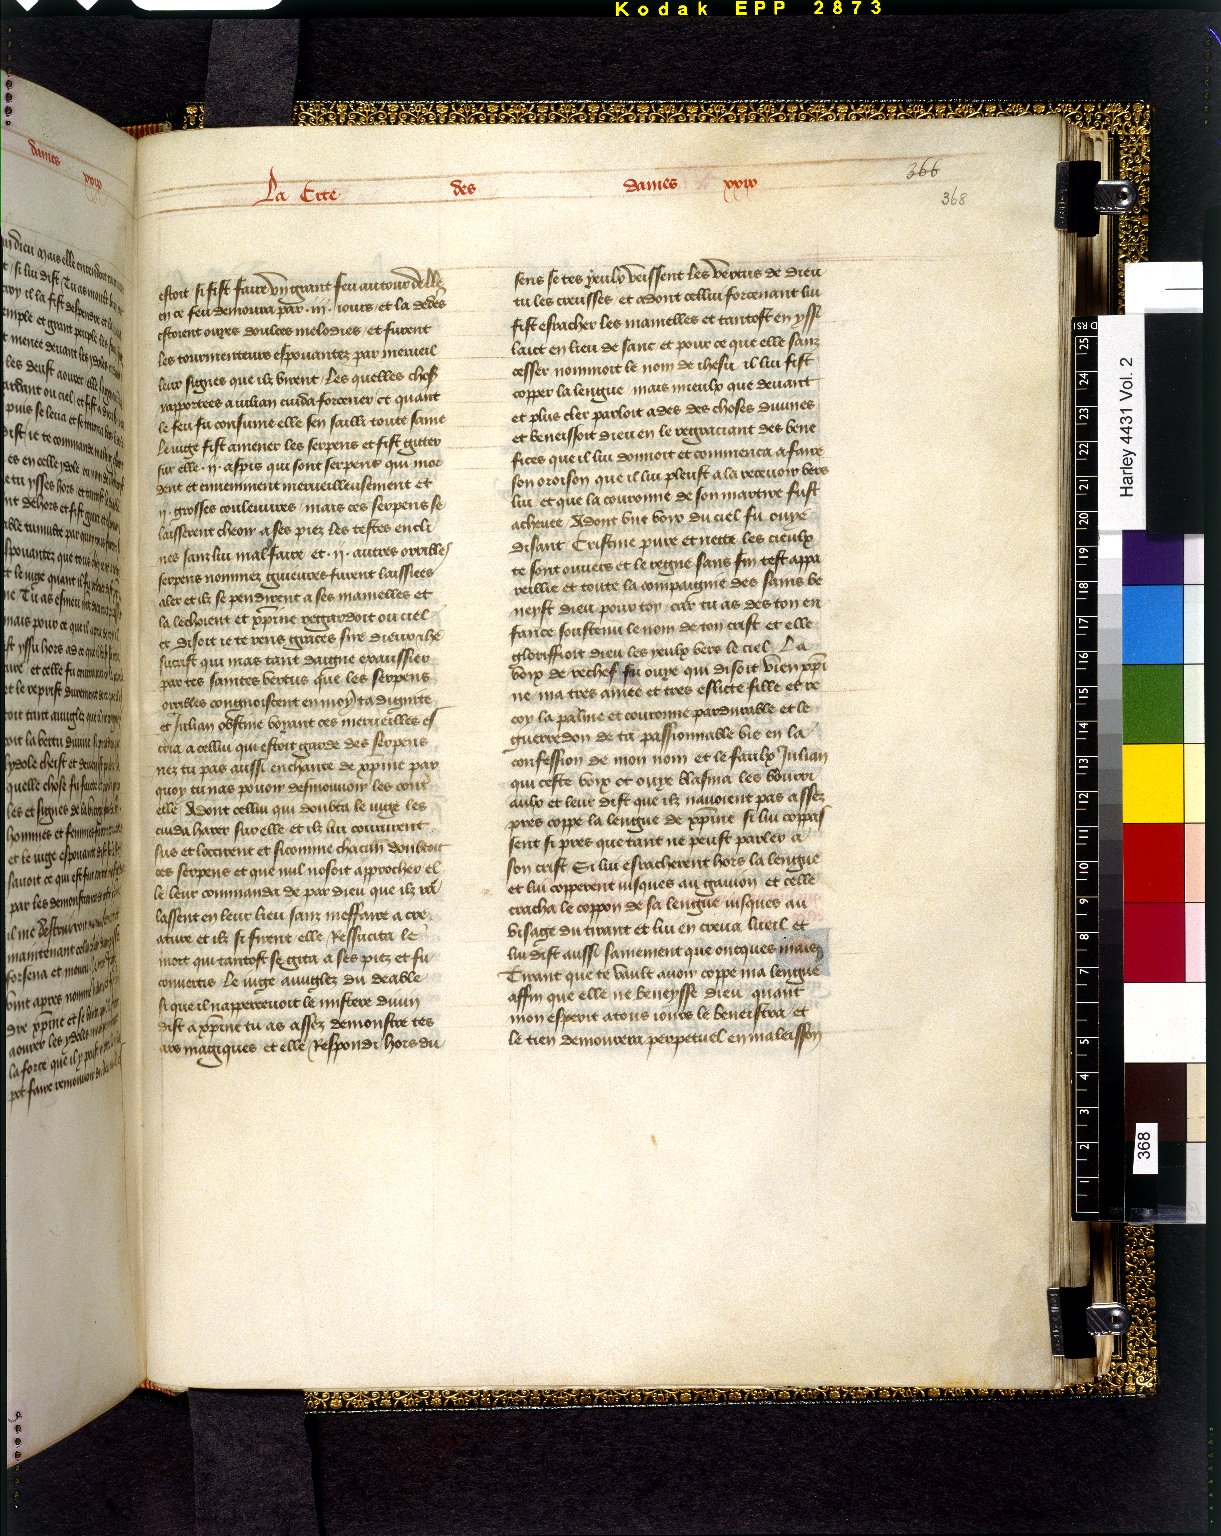 Kodak EPP 2873
La Cite des dames xxix
366
368
estoit si fist faire vn grant feu autour delle
en ce feu demoura par .iii. iours et la dedens
estoient ouyes doulces melodies et furent
les tourmenteurs espouantez par merueil
leux signes que ilz virent Les quelles choses
rapportees a iulian cuida forcener et quant
le feu fu consume elle sen sailli toute saine
Le iuge fist amener les serpens et fist gitter
sur elle .ij. aspis qui sont serpens qui mor
dent et enueniment merueilleusement et
.ij. grosses couleuures mais ces serpens se
laisserent cheoir a ses piez les testes encli
nes sanz lui mal faire et .ij. autres orribles
serpens nommez guieures furent laissiees
aler et ilz se pendirent a ses mamelles et
la lechoient et xpine regardoit ou ciel
et disoit ie te rens graces sire dieux ihu
sucrist qui mas tant daigne exaussier
par tes saintes vertus que les serpens
orribles congnoiscent en moy ta dignite
et Julian obstine voyant ces merueilles es
cria a cellui qui estoit garde des serpens
nez tu pas aussi enchante de xpine par
quoy tu nas pouoir desmouuoir les contre
elle Adont cellui qui doubta le iuge les
cuida hater sur elle et ilz lui coururent
sus et loccirent et si comme chacun doubtoit
ces serpens et que nul nosoit approcher el
le leur commanda de par dieu que ilz ral
lassent en leur lieu sanz meffaire a cre
ature et ilz si firent elle Ressucita le
mort qui tantost se gita a ses piez et fu
conuertis Le iuge auuiglez du deable
si que il napperceuoit le mistere diuin
dist a xpine tu as assez demonstre tes
ars magiques et elle Respondi hors du
sens se tes yeulx veissent les vertus de dieu
tu les creusses et adont cellui forcenant lui
fist esracher les mamelles et tantost en yssi
laict en lieu de sanc et pour ce que elle sanz
cesser nommoit le nom de ihesu il lui fist
copper la lengue mais mieulx que deuant
et plus cler parloit ades des choses diuines
et beneissoit dieu en le regraciant des bene
fices que il lui donnoit et commenca a faire
son oroison que il lui pleust a la receuoir vers
lui et que la couronne de son martire fust
acheuee Adont vne voix du ciel fu ouye
disant Cristine pure et nette les cieulx
te sont ouuers et le regne sans fin test appa
reillie et toute la compaignie des sains be
neyst dieu pour toy car tu as des ton en
fance soustenu le nom de ton crist et elle
glorifioit dieu les yeulx vers le ciel La
voix de rechef fu ouye qui disoit vien xpi
ne ma tres amee et tres eslicte fille et re
coy la palme et couronne pardurable et le
guerredon de ta passionnable vie en la
confession de mon nom et le faulx Julian
qui ceste voix ot ouye blasma les bourri
aulx et leur dist que ilz nauoient pas assez
pres coppe la lengue de xpine si lui coppas
sent si pres que tant ne peust parler a
son crist Si lui esracherent hors la lengue
et lui copperent iusques au gauion et celle
cracha le coppon de sa lengue iusques au
visage du tirant et lui en creua lueil et
lui dist aussi sainement que oncques mais
Tirant que te vault auoir coppe ma lengue
affin que elle ne beneysse dieu quant
mon esperit a tous iours le beneistra et
le tien demourera perpetuel en maleisson
Harley 4431 Vol. 2
368